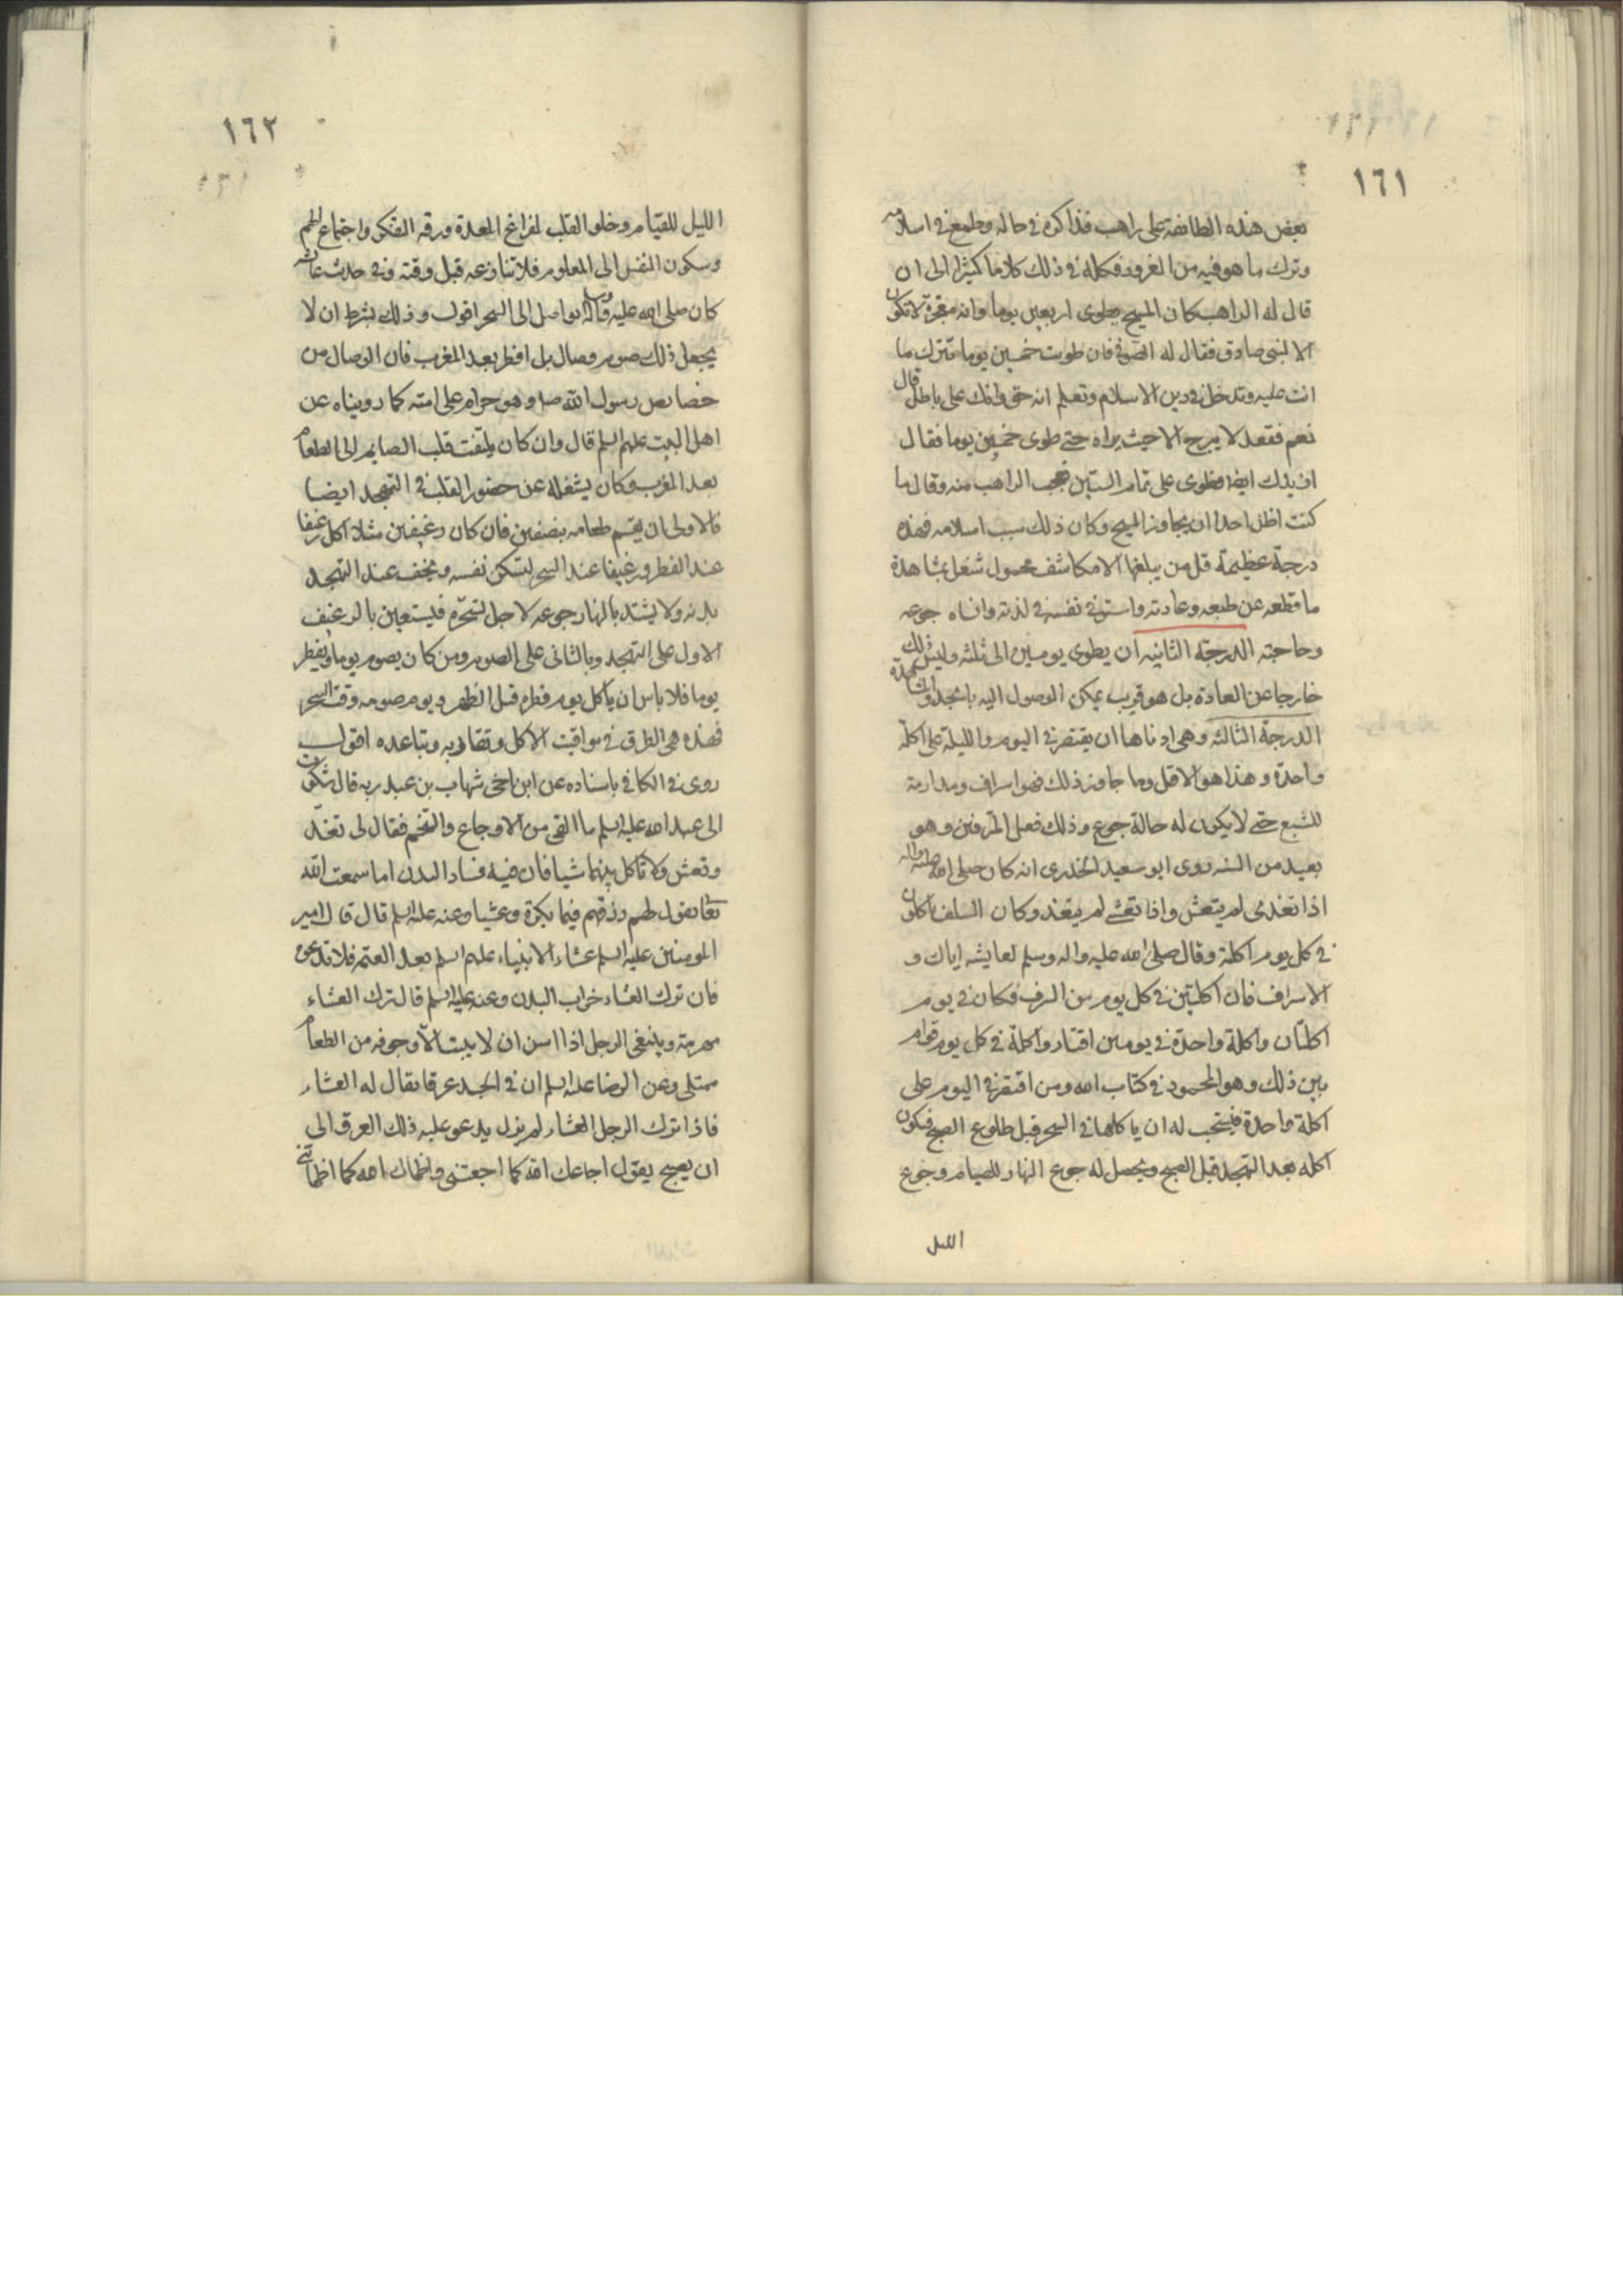 ١٦١
بعض هذه الطائفة على راهب فذاكره في حاله وطمع في اسلامه
وترك ما هو فيه من الغرور فكلمه في ذلك كلاما كثيرا الى ان
قال له الراهب كان المسيح يطوى اربعين يوما وانه معجزة لا تكون
الا لنبى صادق فقال له الصوفي فان طويت خمسين يوما تترك ما
انت عليه وتدخل في دين الاسلام وتعلم انه حق وانك على باطل قال
نعم فقعد لا يبرح الا حيث يراه حتى طوى خمسين يوما فقال
ازيدك ايضا فطوى على تمام الستين فعجب الراهب منه وقال ما
كنت اظن احدا ان يجاوز المسيح وكان ذلك سبب اسلامه فهذه
درجة عظيمة قل من يبلغها الا مكاشف محمول شغل بمشاهدة
ما قطعه عن طبعه وعادته واستوفى نفسه في لذته وانساه جوعه
وحاجته الدرجة الثانيه ان يطوى يومين الى ثلثه وليس ذلك
خارجا عن العادة بل هو قريب يمكن الوصول اليه بالجد والمجاهدة
الدرجة الثالثه وهى ادناها ان يقتصر في اليوم والليلة على اكلة
واحدة وهذا هو الاقل وما جاوز ذلك فهو اسراف ومداومة
للشبع حتى لا يكون له حالة جوع وذلك فعل المترفين وهو
بعيد من السنه روى ابو سعيد الخدرى انه كان صلى الله عليه واله
اذا تغدى لم يتعش واذا تعشى لم يتغد وكان السلف ياكلون
في كل يوم اكلة وقال صلى الله عليه واله وسلم لعايشه اياك و
الاسراف فان اكلتين في كل يوم من السرف فكان في يوم
اكلتان واكلة واحدة في يومين اقتار واكلة في كل يوم قوام
بين ذلك وهو المحمود في كتاب الله ومن اقتصر في اليوم على
اكلة واحدة فيستحب له ان ياكلها في السحر قبل طلوع الصبح فيكون
اكله بعد التهجد قبل الصبح ويحصل له جوع النهار للصيام وجوع
الليل
١٦٢
الليل للقيام وخلو القلب لفراغ المعدة ورقه الفكر واجتماع الهم
وسكون النفس الى المعلوم فلا تنازعه قبل وقته وفى حديث عائشه
كان صلى الله عليه واله يواصل الى السحر اقول وذلك بشرط ان لا
يجعل ذلك صوم وصال بل افطر بعد المغرب فان الوصال من
خصايص رسول الله صلى وهو حرام على امته كما رويناه عن
اهل البيت عليهم السلم قال وان كان يلتفت قلب الصايم الى الطعام
بعد المغرب وكان يشغله عن حضور القلب في التهجد ايضا
فالاولى ان يقسم طعامه بنصفين فان كان رغيفين مثلا اكل رغيفا
عند الفطر ورغيفا عند السحر لتسكن نفسه ويخف عند التهجد
بدنه ولا يشتد بالنهار جوعه لاجل تسحره فيستعين بالرغيف
الاول على التهجد وبالثانى على الصوم ومن كان يصوم يوما ويفطر
يوما فلا باس ان ياكل يوم فطره قبل الظهر ويوم صومه وقت السحر
فهذه هى الطرق في مواقيت الاكل وتقاربه وتباعده اقول
روى في الكافى باسناده عن ابن اخى شهاب بن عبد ربه قال شكوت
الى عبد الله عليه السلم ما القى من الاوجاع والتخم فقال لى تغد
وتعش ولا تاكل بينهما شيا فان فيه فساد البدن اما سمعت الله
تعا يقول لهم رزقهم فيها بكرة وعشيا وعنه عليه السلم قال قال امير
المومنين عليه السلم عشاء الانبياء عليهم السلم بعد العتمه فلا تدعوه
فان ترك العشاء خراب البدن وعنه عليه السلم قال ترك العشاء
مهرمة وينبغى للرجل اذا اسن ان لا يبيت الا وجوفه من الطعام
ممتلى وعن الرضا عليه السلم ان في الجسد عرقا يقال له العشاء
فاذا ترك الرجل العشاء لم يزل يدعو عليه ذلك العرق الى
ان يصبح يقول اجاعك الله كما اجعتنى واظماك الله كما اظماتنى